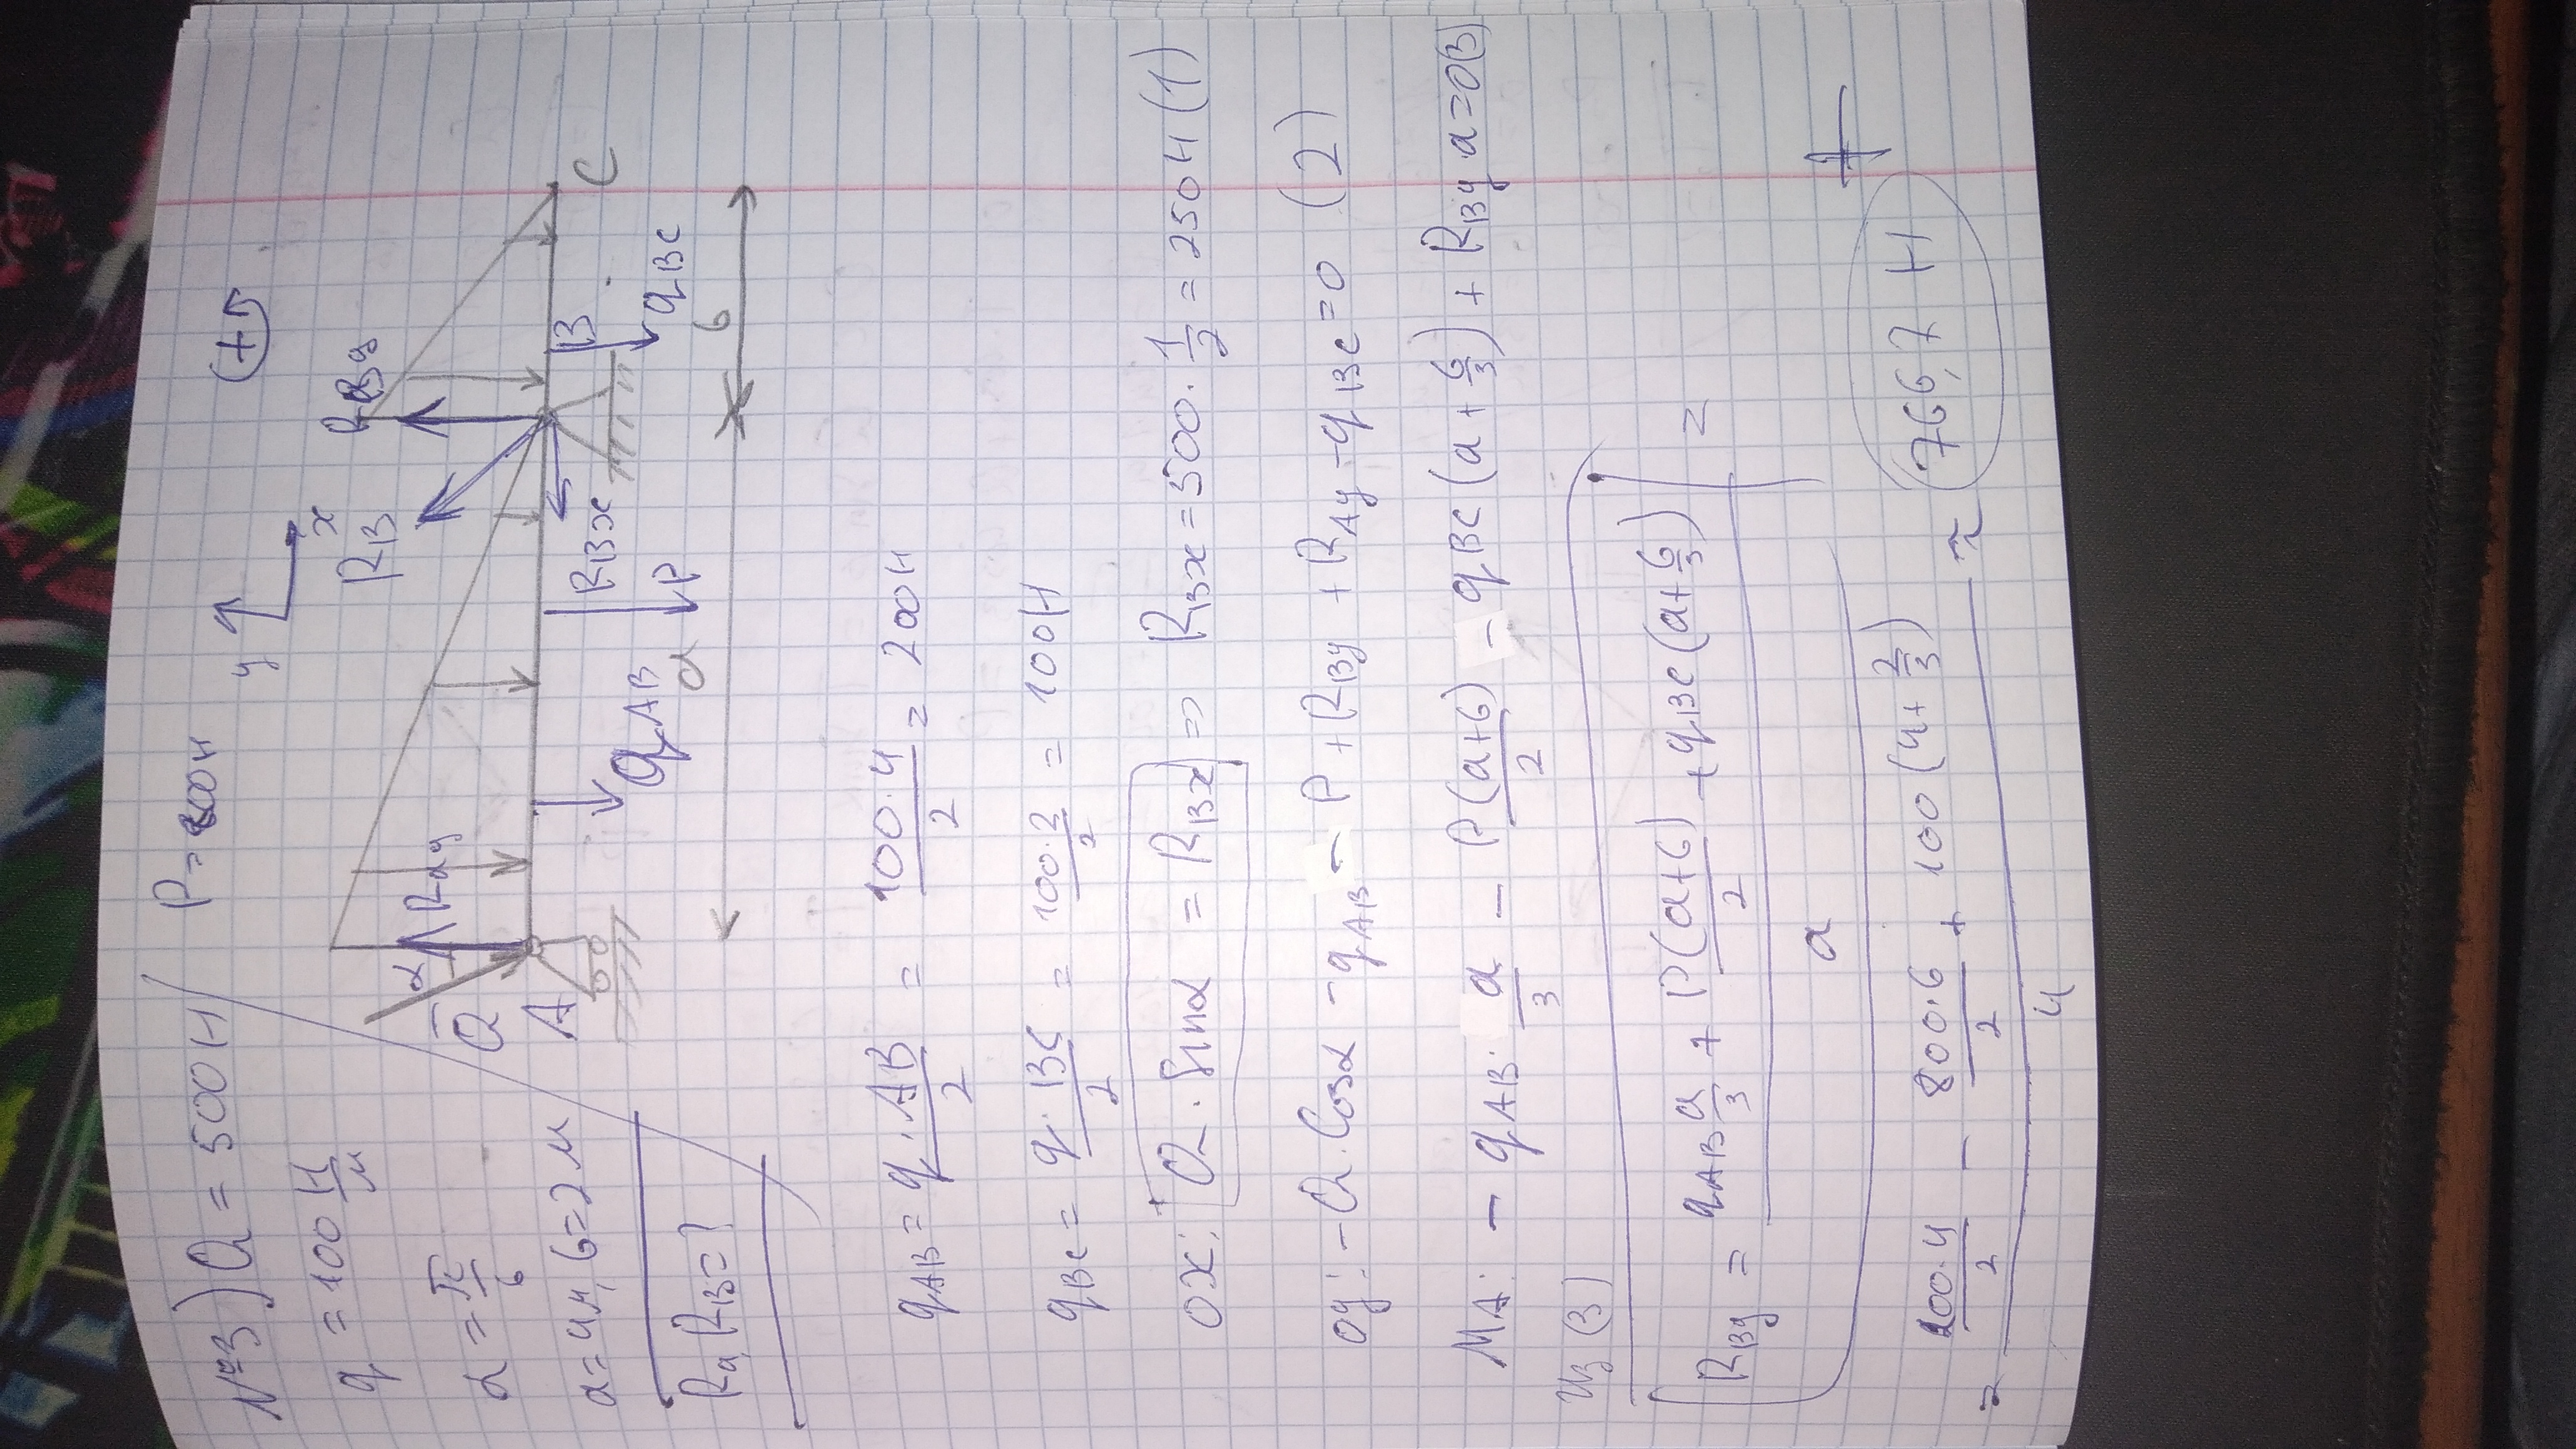 №3) Q = 500 Н
P = 800 Н
q = 100 Н/м
α = π/6
a = 4 м, б = 2 м
Ra, RB = ?
y
x
(+)
Q̅
α
Ray
RB
RBy
A
qAB
RBx
P
B
C
qBC
a
б
qAB = q · AB / 2 = 100·4 / 2 = 200 Н
qBC = q · BC / 2 = 100·2 / 2 = 100 Н
ox: Q · Sinα = RBx => RBx = 500 · 1/2 = 250 Н (1)
oy: -Q · Cosα - qAB - P + RBy + RAy - qBC = 0 (2)
MA: - qAB · a/3 - P(a+б)/2 - qBC (a + б/3) + RBy a = 0 (3)
Из (3)
RBy = (qAB a/3 + P(a+б)/2 + qBC (a + б/3)) / a =
= (200·4/2 - 800·6/2 + 100 (4 + 2/3)) / 4 ≈ 766,7 Н
+